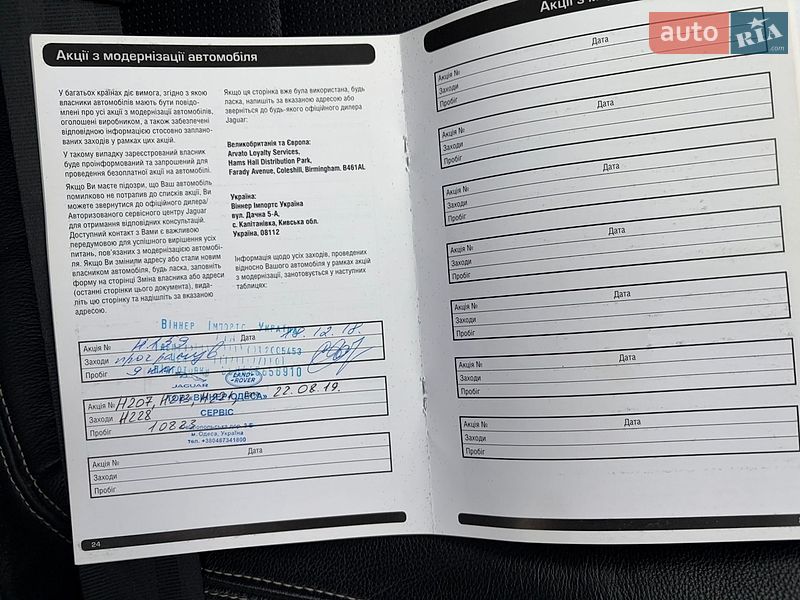 Акції з модернізації автомобіля
У багатьох країнах діє вимога, згідно з якою
власники автомобілів мають бути повідо-
млені про усі акції з модернізації автомобілів,
оголошені виробником, а також забезпечені
відповідною інформацією стосовно заплано-
ваних заходів у рамках цих акцій.
У такому випадку зареєстрований власник
буде проінформований та запрошений для
проведення безоплатної акції на автомобілі.
Якщо Ви маєте підозри, що Ваш автомобіль
помилково не потрапив до списків акції, Ви
можете звернутися до офіційного дилера/
Авторизованого сервісного центру Jaguar
для отримання відповідних консультацій.
Доступний контакт з Вами є важливою
передумовою для успішного вирішення усіх
питань, пов'язаних з модернізацією автомобі-
ля. Якщо Ви змінили адресу або стали новим
власником автомобіля, будь ласка, заповніть
форму на сторінці Зміна власника або адреси
(останні сторінки цього документа), вида-
літь цю сторінку та надішліть за вказаною
адресою.
Якщо ця сторінка вже була використана, будь
ласка, напишіть за вказаною адресою або
зверніться до будь-якого офіційного дилера
Jaguar:
Великобританія та Європа:
Arvato Loyalty Services,
Hams Hall Distribution Park,
Farady Avenue, Coleshill, Birmingham. B461AL
Україна:
Віннер Імпортс Україна
вул. Дачна 5-А,
с. Капітанівка, Київська обл.
Україна, 08112
Інформація щодо усіх заходів, проведених
відносно Вашого автомобіля у рамках акцій
з модернізації, занотовується у наступних
таблицях:
Віннер Імпортс Україна
Акція № Дата 12.18.
Заходи
Пробіг
JAGUAR LAND ROVER
Акція № H207, 22.08.19.
Заходи H228
Пробіг 10223
СЕРВІС
м. Одеса, Україна
тел. +380487341800
Акція № Дата
Заходи
Пробіг
24
Акції з
Акція № Дата
Заходи
Пробіг
Акція № Дата
Заходи
Пробіг
Акція № Дата
Заходи
Пробіг
Акція № Дата
Заходи
Пробіг
Акція № Дата
Заходи
Пробіг
Акція № Дата
Заходи
Пробіг
Акція № Дата
Заходи
Пробіг
auto RIA .com